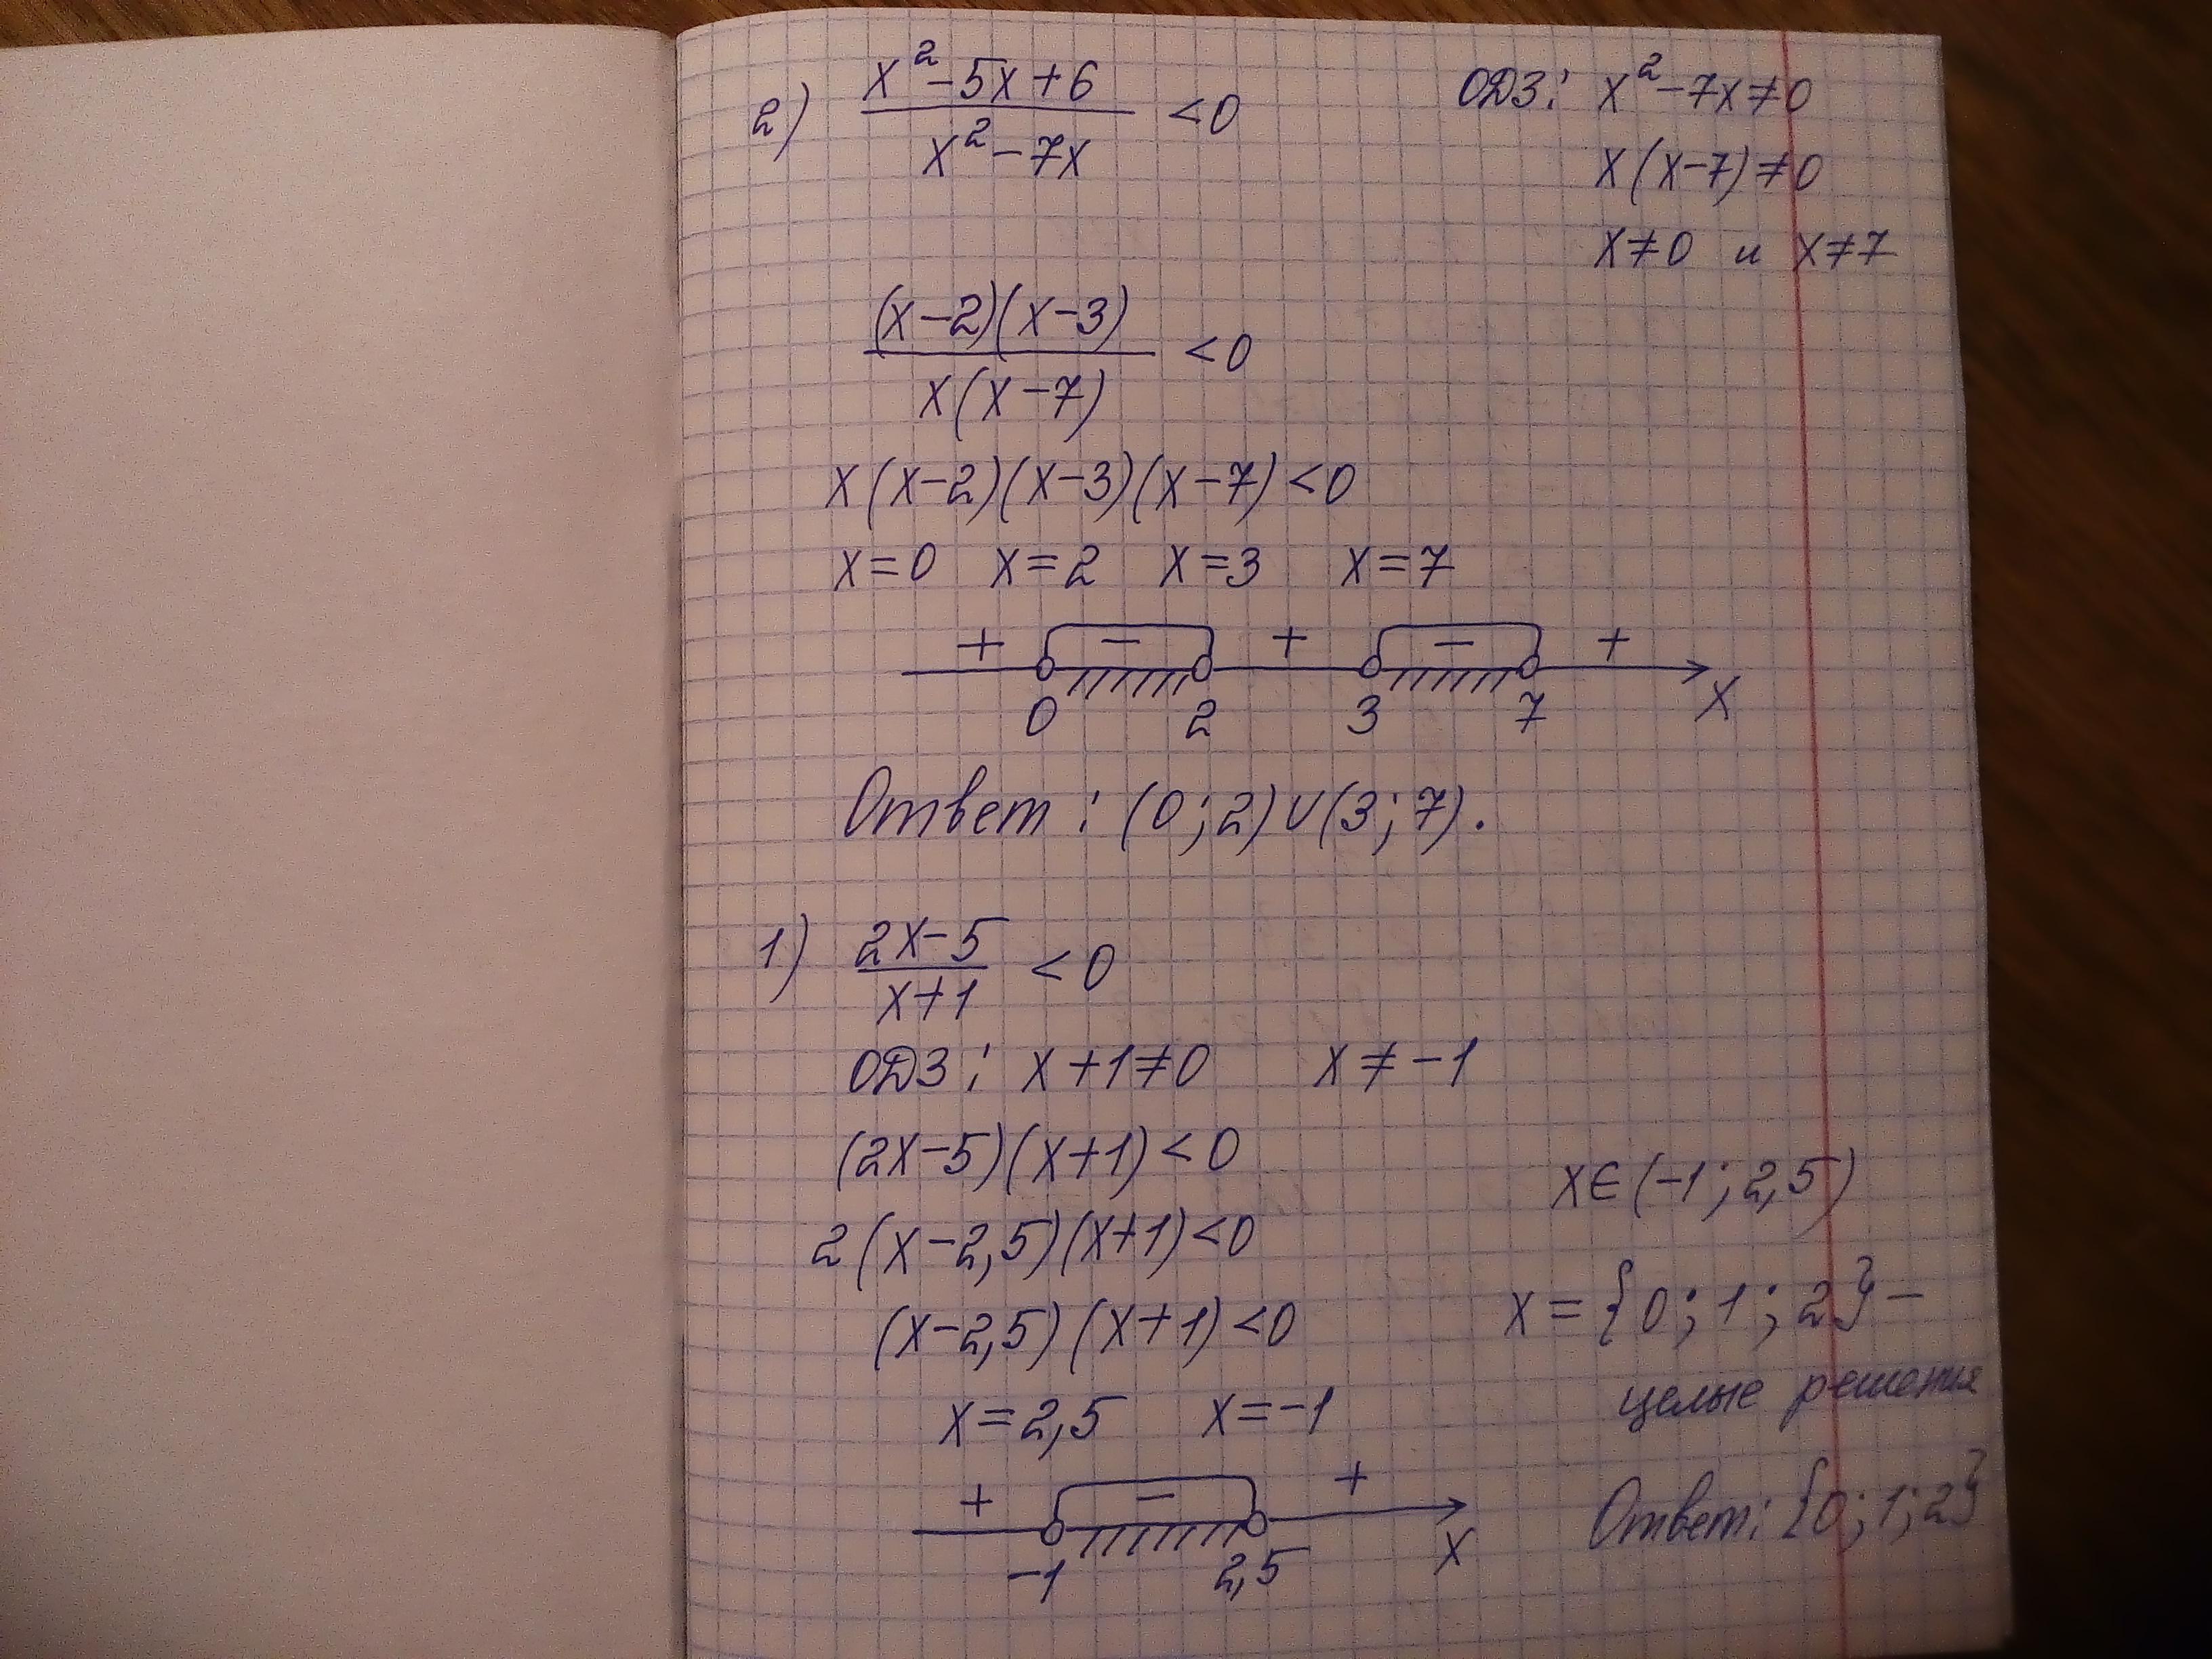 2) (x²-5x+6)/(x²-7x) <0
ОДЗ: x²-7x≠0
x(x-7)≠0
x≠0 и x≠7
((x-2)(x-3))/(x(x-7)) <0
x(x-2)(x-3)(x-7)<0
x=0 x=2 x=3 x=7
+ - + - +
0 2 3 7 x
Ответ: (0;2)∪(3;7).
1) (2x-5)/(x+1) <0
ОДЗ: x+1≠0 x≠-1
(2x-5)(x+1)<0
2(x-2,5)(x+1)<0
(x-2,5)(x+1)<0
x=2,5 x=-1
+ - +
-1 2,5 x
x∈(-1;2,5)
x={0;1;2}-
целые решения
Ответ: {0;1;2}